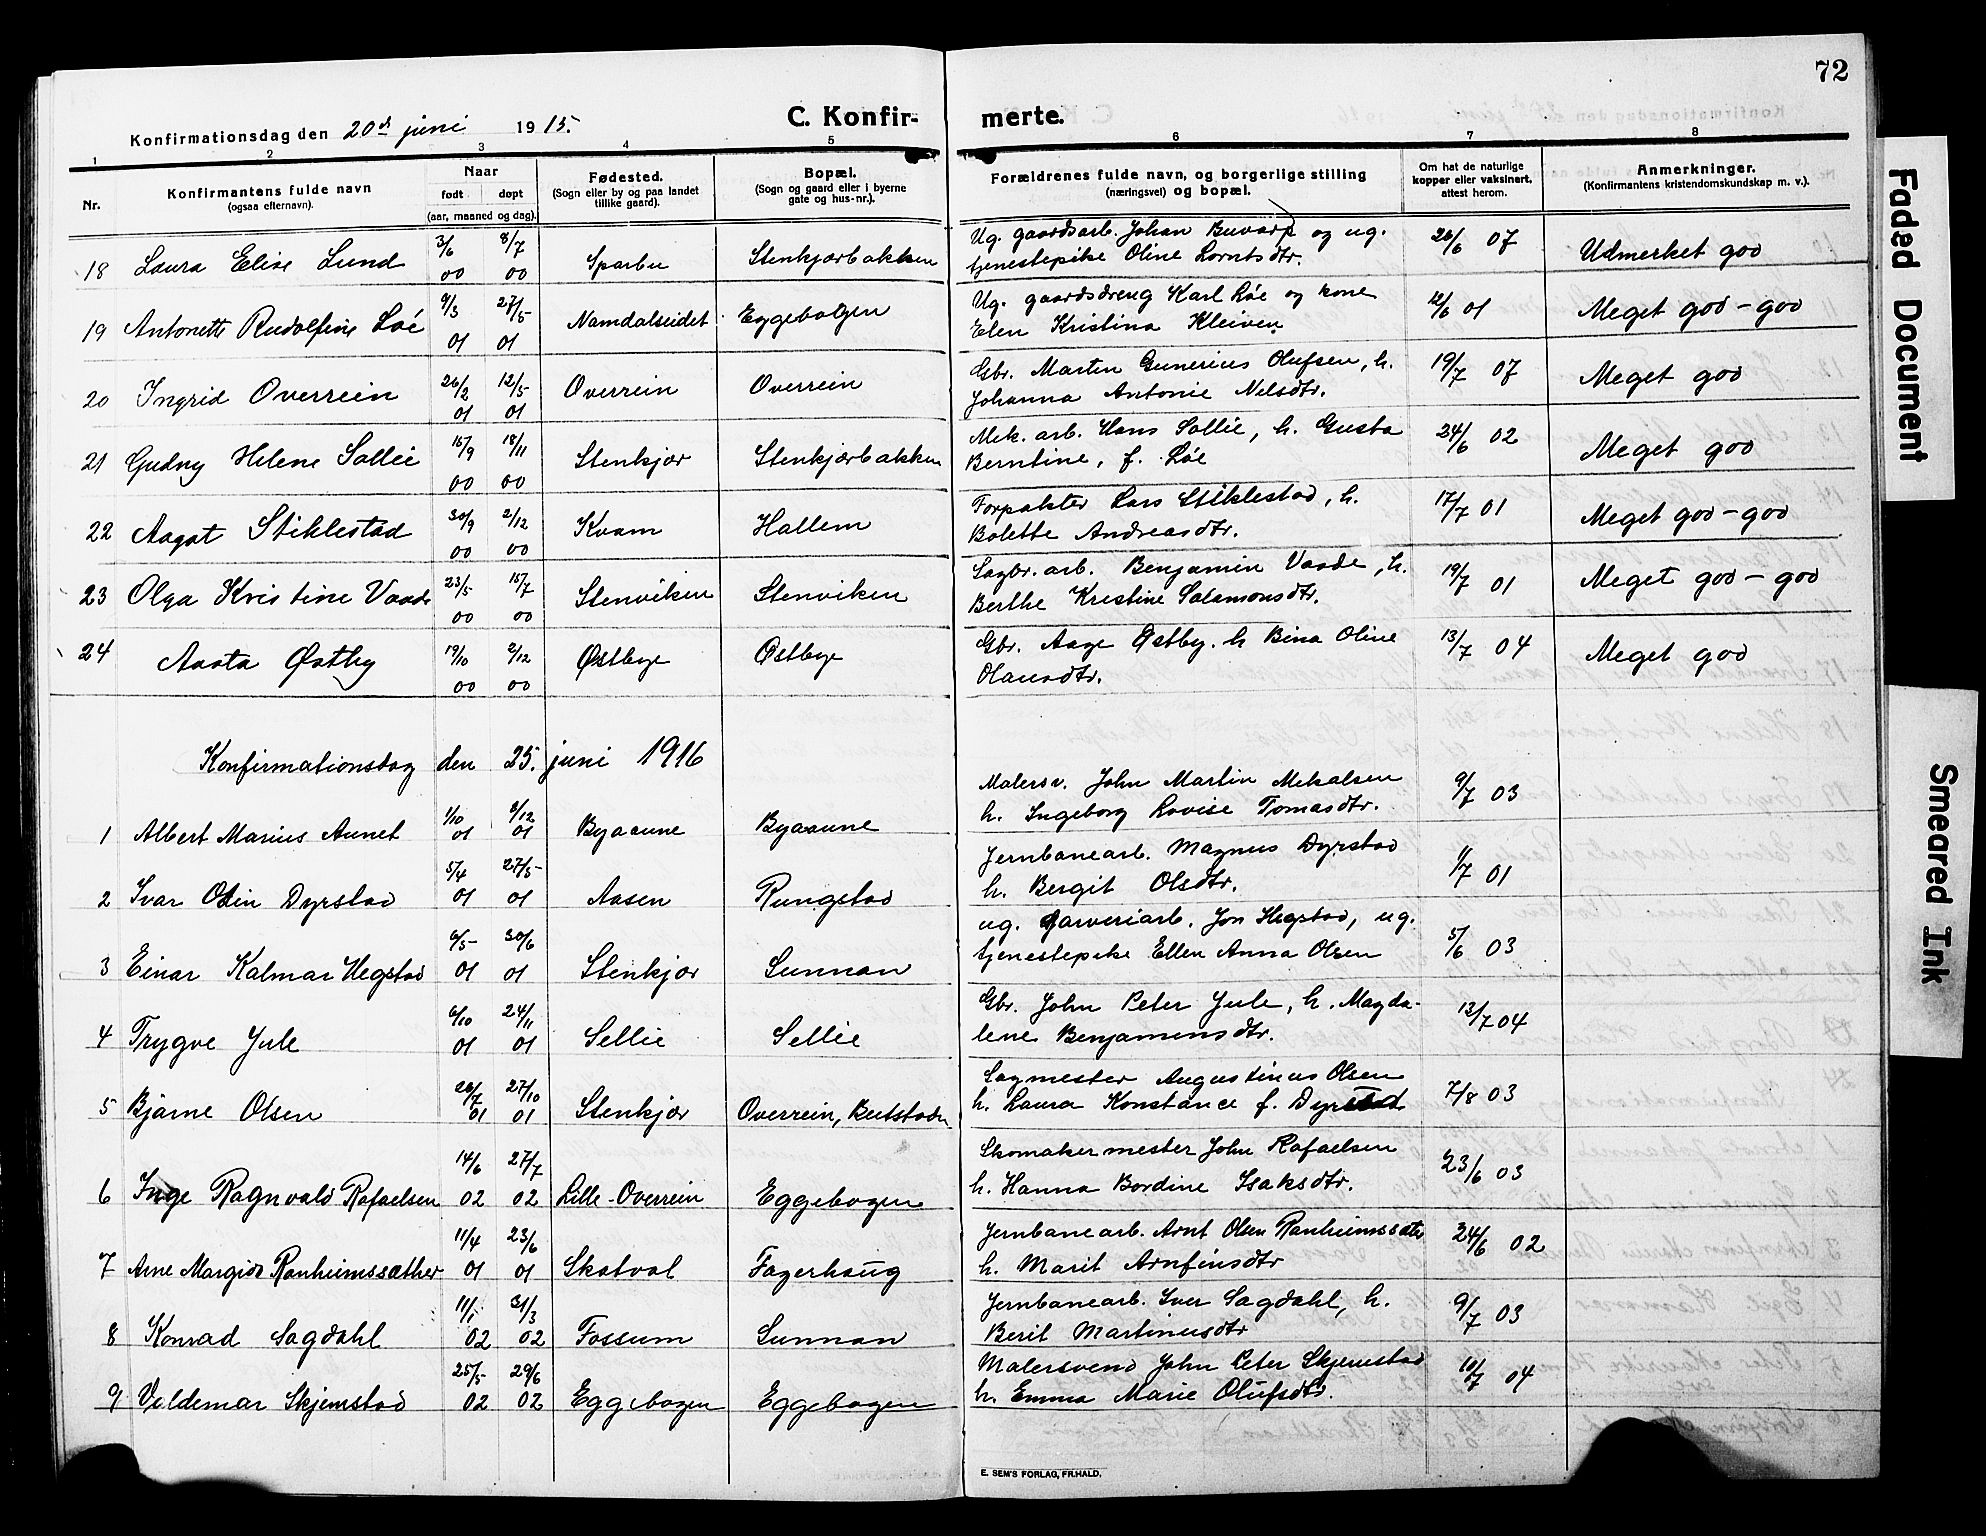 72
C. Konfirmerte.
Konfirmationsdag den 20de juni 1915.
1 2 3 4 5 6 7 8
Nr.
Konfirmantens fulde navn
(ogsaa efternavn).
Naar
født døpt
(aar, maaned og dag).
Fødested.
(Sogn eller by og paa landet
tillike gaard).
Bopæl.
(Sogn og gaard eller i byerne
gate og hus-nr.).
Forældrenes fulde navn, og borgerlige stilling
(næringsvei) og bopæl.
Om hat de naturlige
kopper eller vaksinert,
attest herom.
Anmerkninger.
(Konfirmantens kristendomskundskap m. v.).
18 Laura Elise Lund 3/6 00 8/7 00 Sparbu Stenkjærbakken Ug. gaardsarb. Johan Buvarp og ug.
tjenestepike Oline Lorntsdtr. 26/6 07 Udmerket god
19 Antonette Rudolfine Løe 9/3 01 27/5 01 Namdalseidet Eggebogen Ug. gaardsdreng Karl Løe og kone
Elen Kristina Kleiven 12/6 01 Meget god - god
20 Ingrid Overrein 26/2 01 12/5 01 Overrein Overrein Gbr. Martin Gunerius Olufsen, h.
Johanna Antonie Nelsdtr. 19/7 07 Meget god
21 Gudny Helene Sollie 15/9 00 18/11 00 Stenkjær Stenkjærbakken Mek. arb. Hans Sollie, h. Gusta
Berntine, f. Løe 24/6 02 Meget god
22 Aagot Stiklestad 30/9 00 2/12 00 Kvam Hallem Forpakter Lars Stiklestad, h.
Bolette Andreasdtr. 17/7 01 Meget god - god
23 Olga Kristine Vaade 23/5 00 15/7 00 Stenviken Stenviken Sagbr. arb. Benjamin Vaade, h.
Berthe Kristine Salamonsdtr. 19/7 01 Meget god - god
24 Aasta Østby 19/10 00 2/12 00 Østbye Østbye Gbr. Aage Østby. h Bina Oline
Olausdtr. 13/7 04 Meget god
Konfirmationsdag den 25. juni 1916
1 Albert Marius Aunet 1/10 01 8/12 01 Byaaune Byaaune Malersv. John Martin Mikalsen
h. Ingeborg Lovise Tomasdtr. 9/7 03
2 Ivar Odin Dyrstad 5/4 01 27/5 01 Aasen Rungstad Jernbanearb. Magnus Dyrstad
h. Bergit Olsdtr. 1/7 01
3 Einar Kalmar Hegstad 6/5 01 30/6 01 Stenkjær Sunnan ug. Garveriarb. Jon Hegstad, ug.
tjenestepike Ellen Anna Olsen 5/6 03
4 Trygve Jule 6/10 01 24/11 01 Sellie Sellie Gbr. John Peter Jule, h. Magda-
lene Benjaminsdtr. 13/7 04
5 Bjarne Olsen 26/7 01 27/10 01 Stenkjær Overrein, Beitstaden Sagmester Augustinus Olsen
h. Laura Konstance f. Dyrstad 7/8 03
6 Inge Ragnvald Rafaelsen 14/6 02 27/7 02 Lille-Overrein Eggebogen Skomakermester John Rafaelsen
h. Hanna Bordine Isaksdtr. 23/6 03
7 Arne Margido Ranheimssæther 11/4 01 23/6 01 Skatval Fagerhaug Jernbanearb. Arnt Olsen Ranheimssæter
h. Marit Arnfinsdtr 24/6 02
8 Konrad Sagdahl 11/1 02 31/3 02 Fossum Sunnan Jernbanearb. Iver Sagdahl, h.
Berit Martinusdtr 9/7 03
9 Valdemar Skjemstad 25/5 02 29/6 02 Eggebogen Eggebogen Malersvend John Peter Skjemstad
h. Emma Marie Olufsdtr. 10/7 04
E. SEM'S FORLAG, FR.HALD.
Faded Document
Smeared Ink